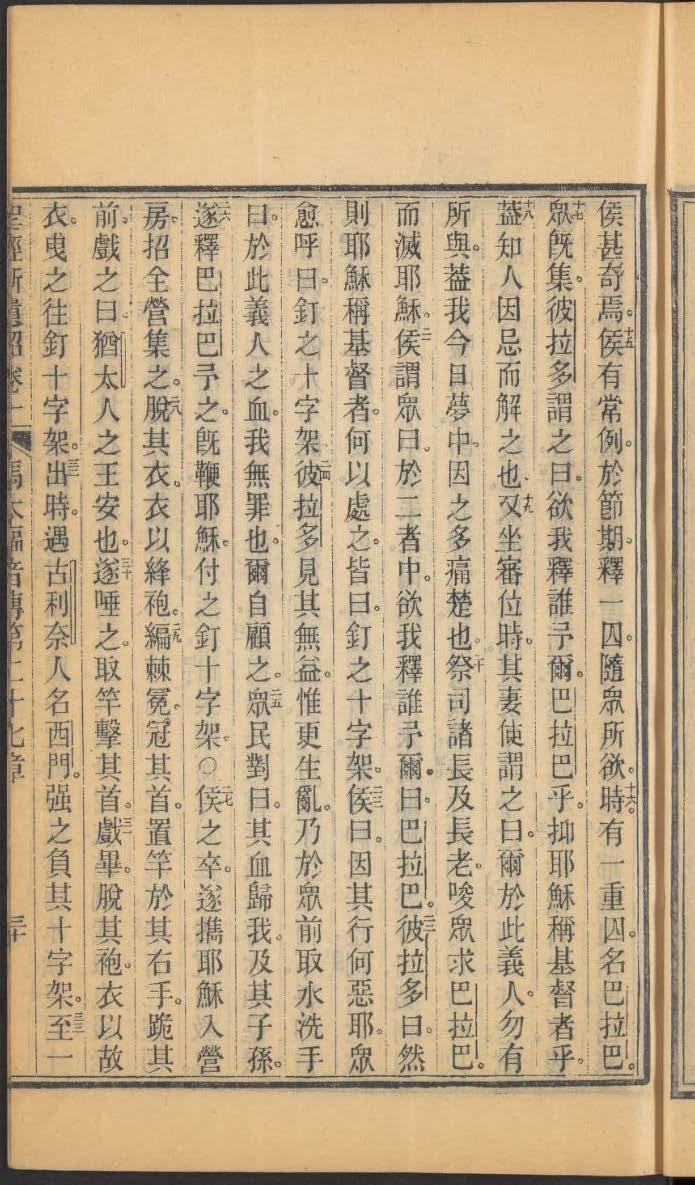 侯甚奇焉。十五侯有常例。於節期。釋一囚。隨眾所欲。十六時。有一重囚。名巴拉巴。
十七眾既集。彼拉多謂之曰。欲我釋誰予爾。巴拉巴乎。抑耶穌稱基督者乎。
十八蓋知人因忌而解之也。十九又坐審位時。其妻使謂之曰。爾於此義人。勿有
所與。蓋我今日夢中。因之多痛楚也。二十祭司諸長及長老。唆眾求巴拉巴。
而滅耶穌。二一侯謂眾曰。於二者中。欲我釋誰予爾。曰。巴拉巴。二二彼拉多曰。然
則耶穌稱基督者。何以處之。皆曰。釘之十字架。二三侯曰。因其行何惡耶。眾
愈呼曰。釘之十字架。二四彼拉多見其無益。惟更生亂。乃於眾前取水洗手
曰。於此義人之血。我無罪也。爾自顧之。二五眾民對曰。其血歸我。及其子孫。
二六遂釋巴拉巴予之。既鞭耶穌。付之釘十字架。○二七侯之卒。遂攜耶穌入營
房。招全營集之。二八脫其衣。衣以絳袍。二九編棘冕。冠其首。置竿於其右手。跪其
前。戲之曰。猶太人之王安也。三十遂唾之。取竿擊其首。三一戲畢。脫其袍。衣以故
衣。曳之往釘十字架。三二出時。遇古利奈人名西門。强之負其十字架。三三至一
聖經新遺詔卷一 馬太福音傳第二十七章 三十